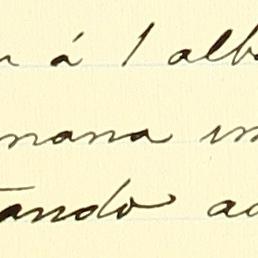 á 1 alb
mana in
tando ad